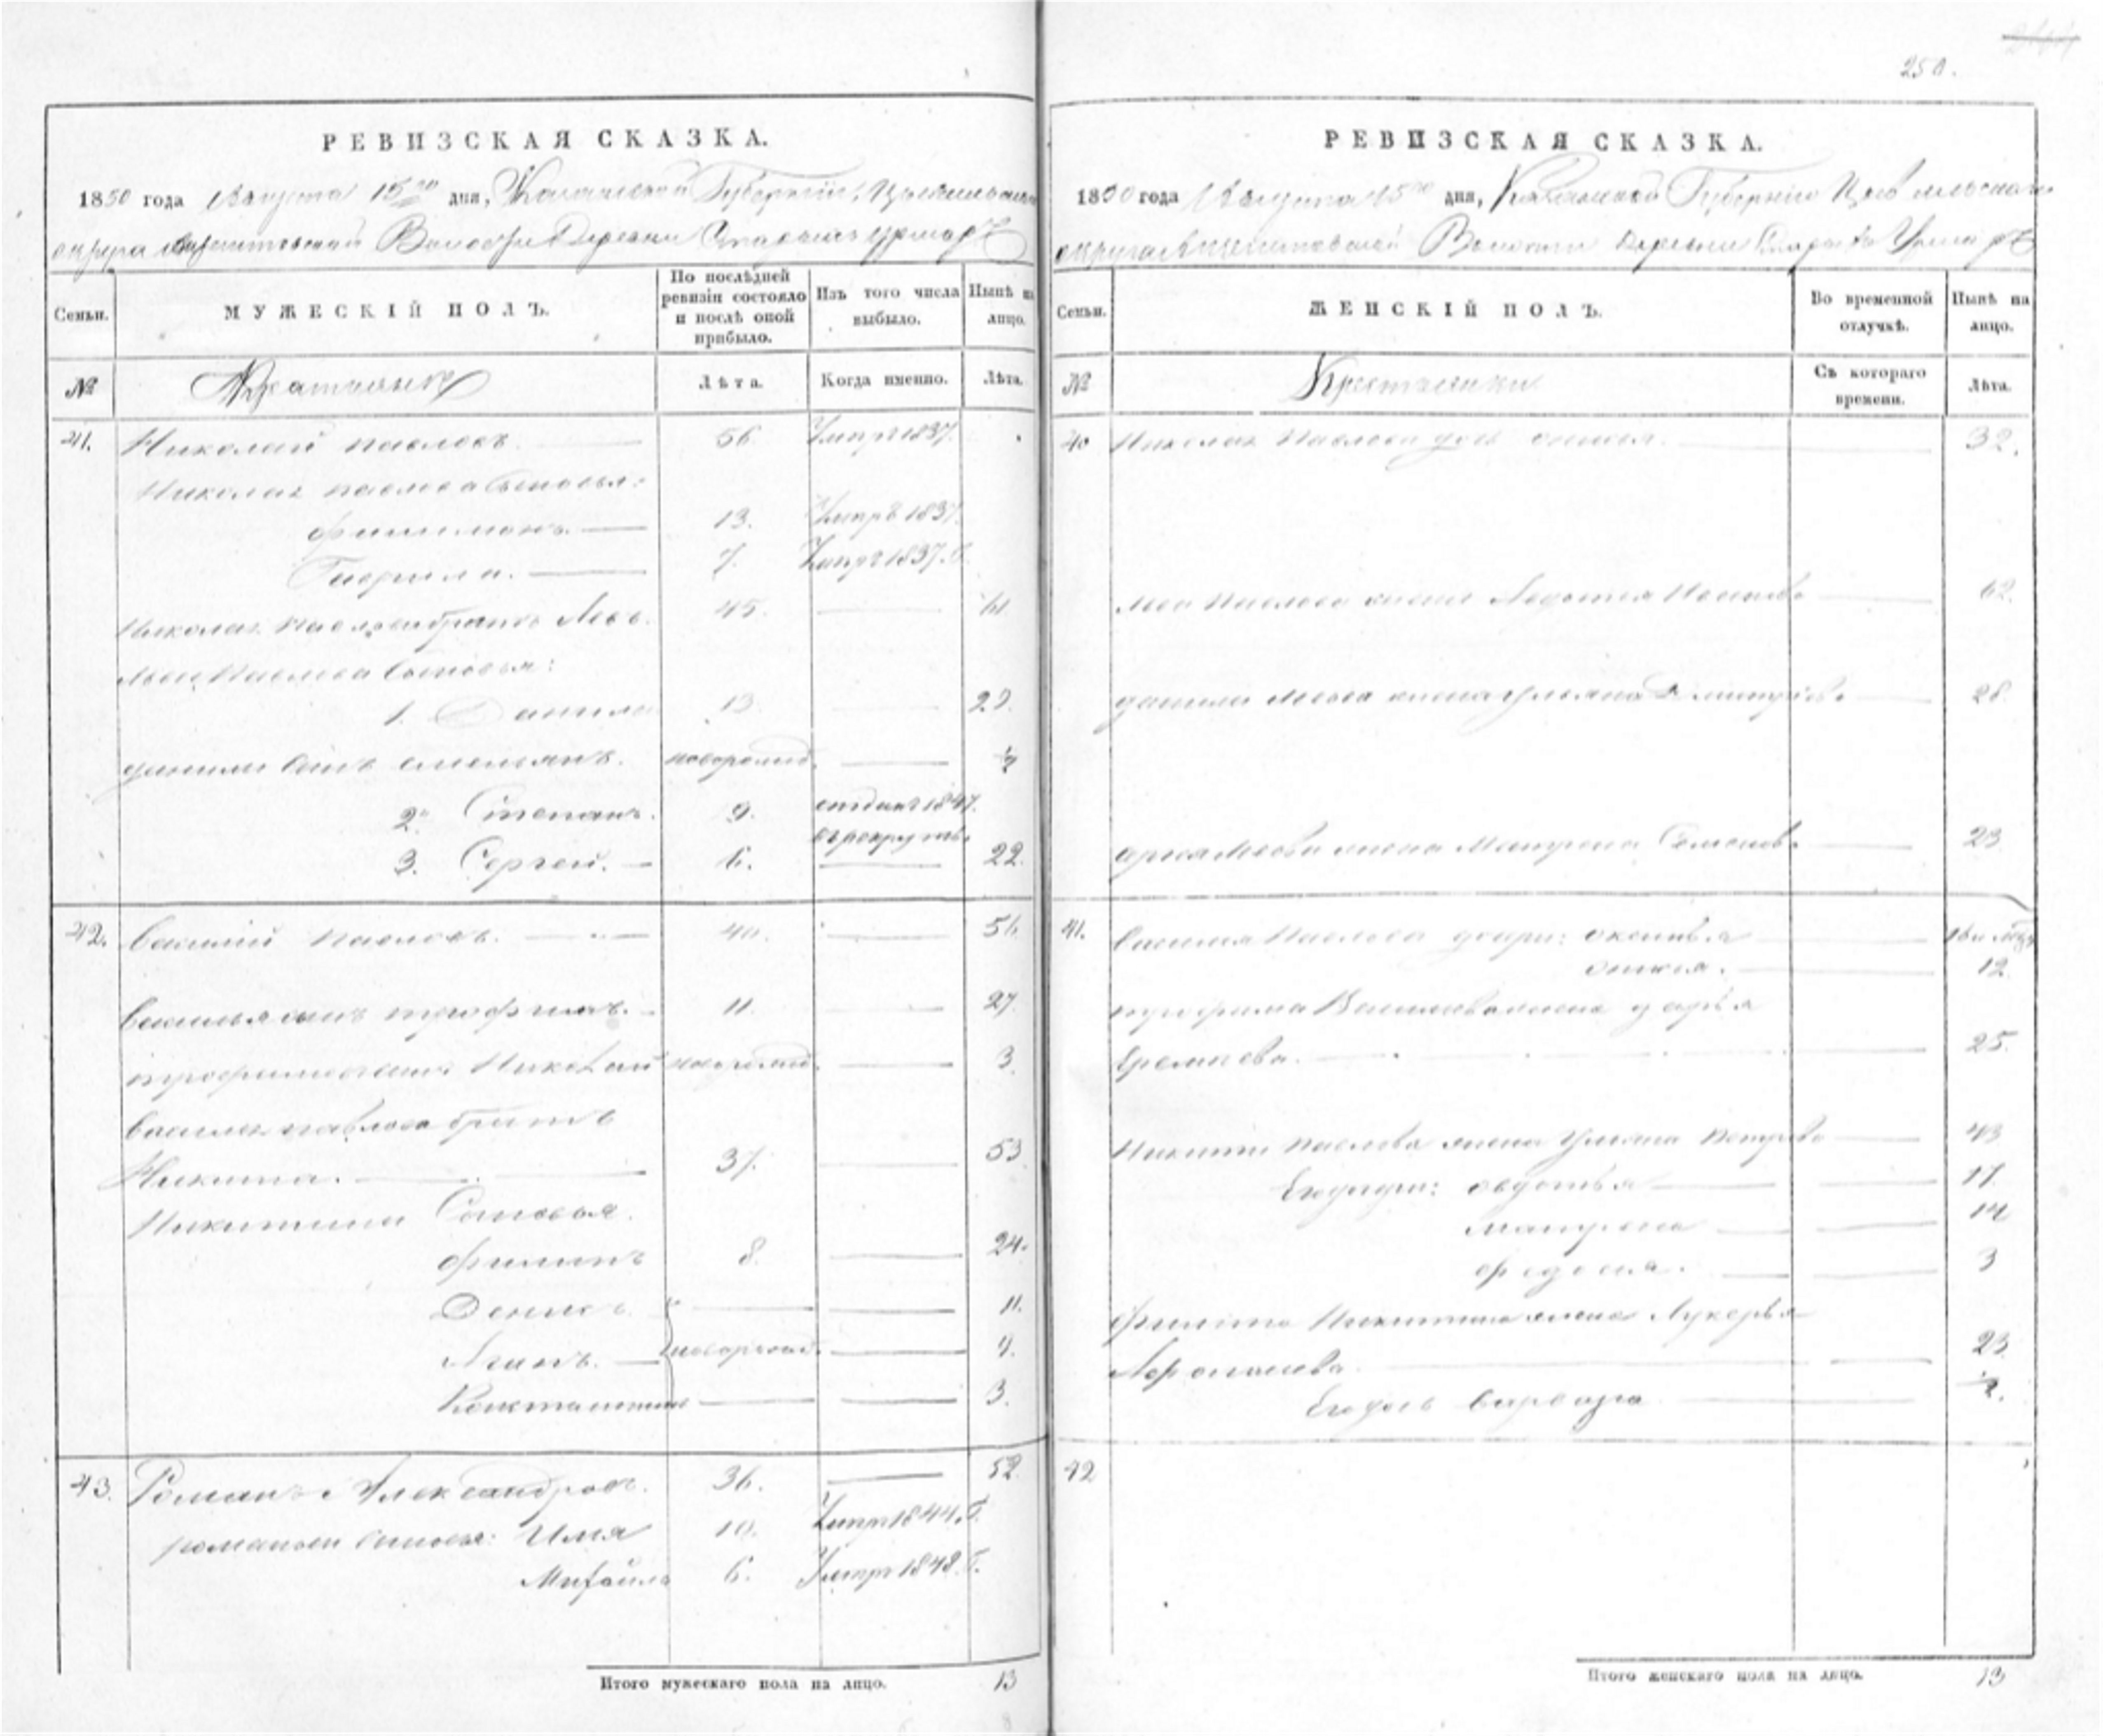 250.
РЕВИЗСКАЯ СКАЗКА.
1850 года Августа 15го дня, Казанской Губернiи, Цывильскаго
округа Волости Деревни Старыхъ Урмаръ
Семьи. МУЖЕСКІЙ ПОЛЪ. По послѣдней ревизіи состояло и послѣ оной прибыло. Изъ того числа выбыло. Нынѣ на лицо.
№ Крестьяне Лѣта. Когда именно. Лѣта.
41. Николай Павловъ. 56 Умпръ 1837.
Николая Павлова сыновья:
Филимонъ. 13. Умпръ 1837.
Гаврила. 7. Умпръ 1837. г.
Николая Павлова братъ Левъ. 45. 61
Льва Павлова сыновья:
1. Данила 13. 29.
Данилы сынъ Емельянъ. новорожд.
2. Степанъ. 9. отданъ 1847. въ рекруты.
3. Сергей. 6. 22.
42. Василий Павловъ. 40. 56
Василья сынъ Трофимъ. 11. 27.
Трофимовъ сынъ Николай новорожд. 3.
Василья Павлова братъ
Никита. 37. 53
Никитины Сыновья.
Филипъ 8. 24.
Денисъ. 11.
новорожд. 9.
Константинъ 3.
43. Романъ Александровъ. 36. 52.
Романовы сыновья: Илья 10. Умпръ 1844. г.
Михайла 6. Умпръ 1848. г.
Итого мужескаго пола на лицо. 13
РЕВИЗСКАЯ СКАЗКА.
1850 года Августа 15го дня, Казанской Губернiи Цывильскаго
округа Волости Деревни Старыхъ Урмаръ
Семьи. ЖЕНСКІЙ ПОЛЪ. Во временной отлучкѣ. Нынѣ на лицо.
№ Крестьянки Съ котораго времени. Лѣта.
40 Николая Павлова дочь 32.
Льва Павлова жена Авдотья 62.
Данилы Львова жена Ульяна Дмитрiева 28.
Львова жена Матрена Семенова 23
41. Василья Павлова дочери: Оксинья
12.
Трофима Васильева жена Дарья
Еремеева. 25.
Никиты Павлова жена Ульяна Петрова 43
Его дочери: Овдотья 17.
Матрена 14
Федосья. 3
Филипа Никитина жена Лукерья
23.
Его дочь Варвара
42
Итого женскаго пола на лицо. 13